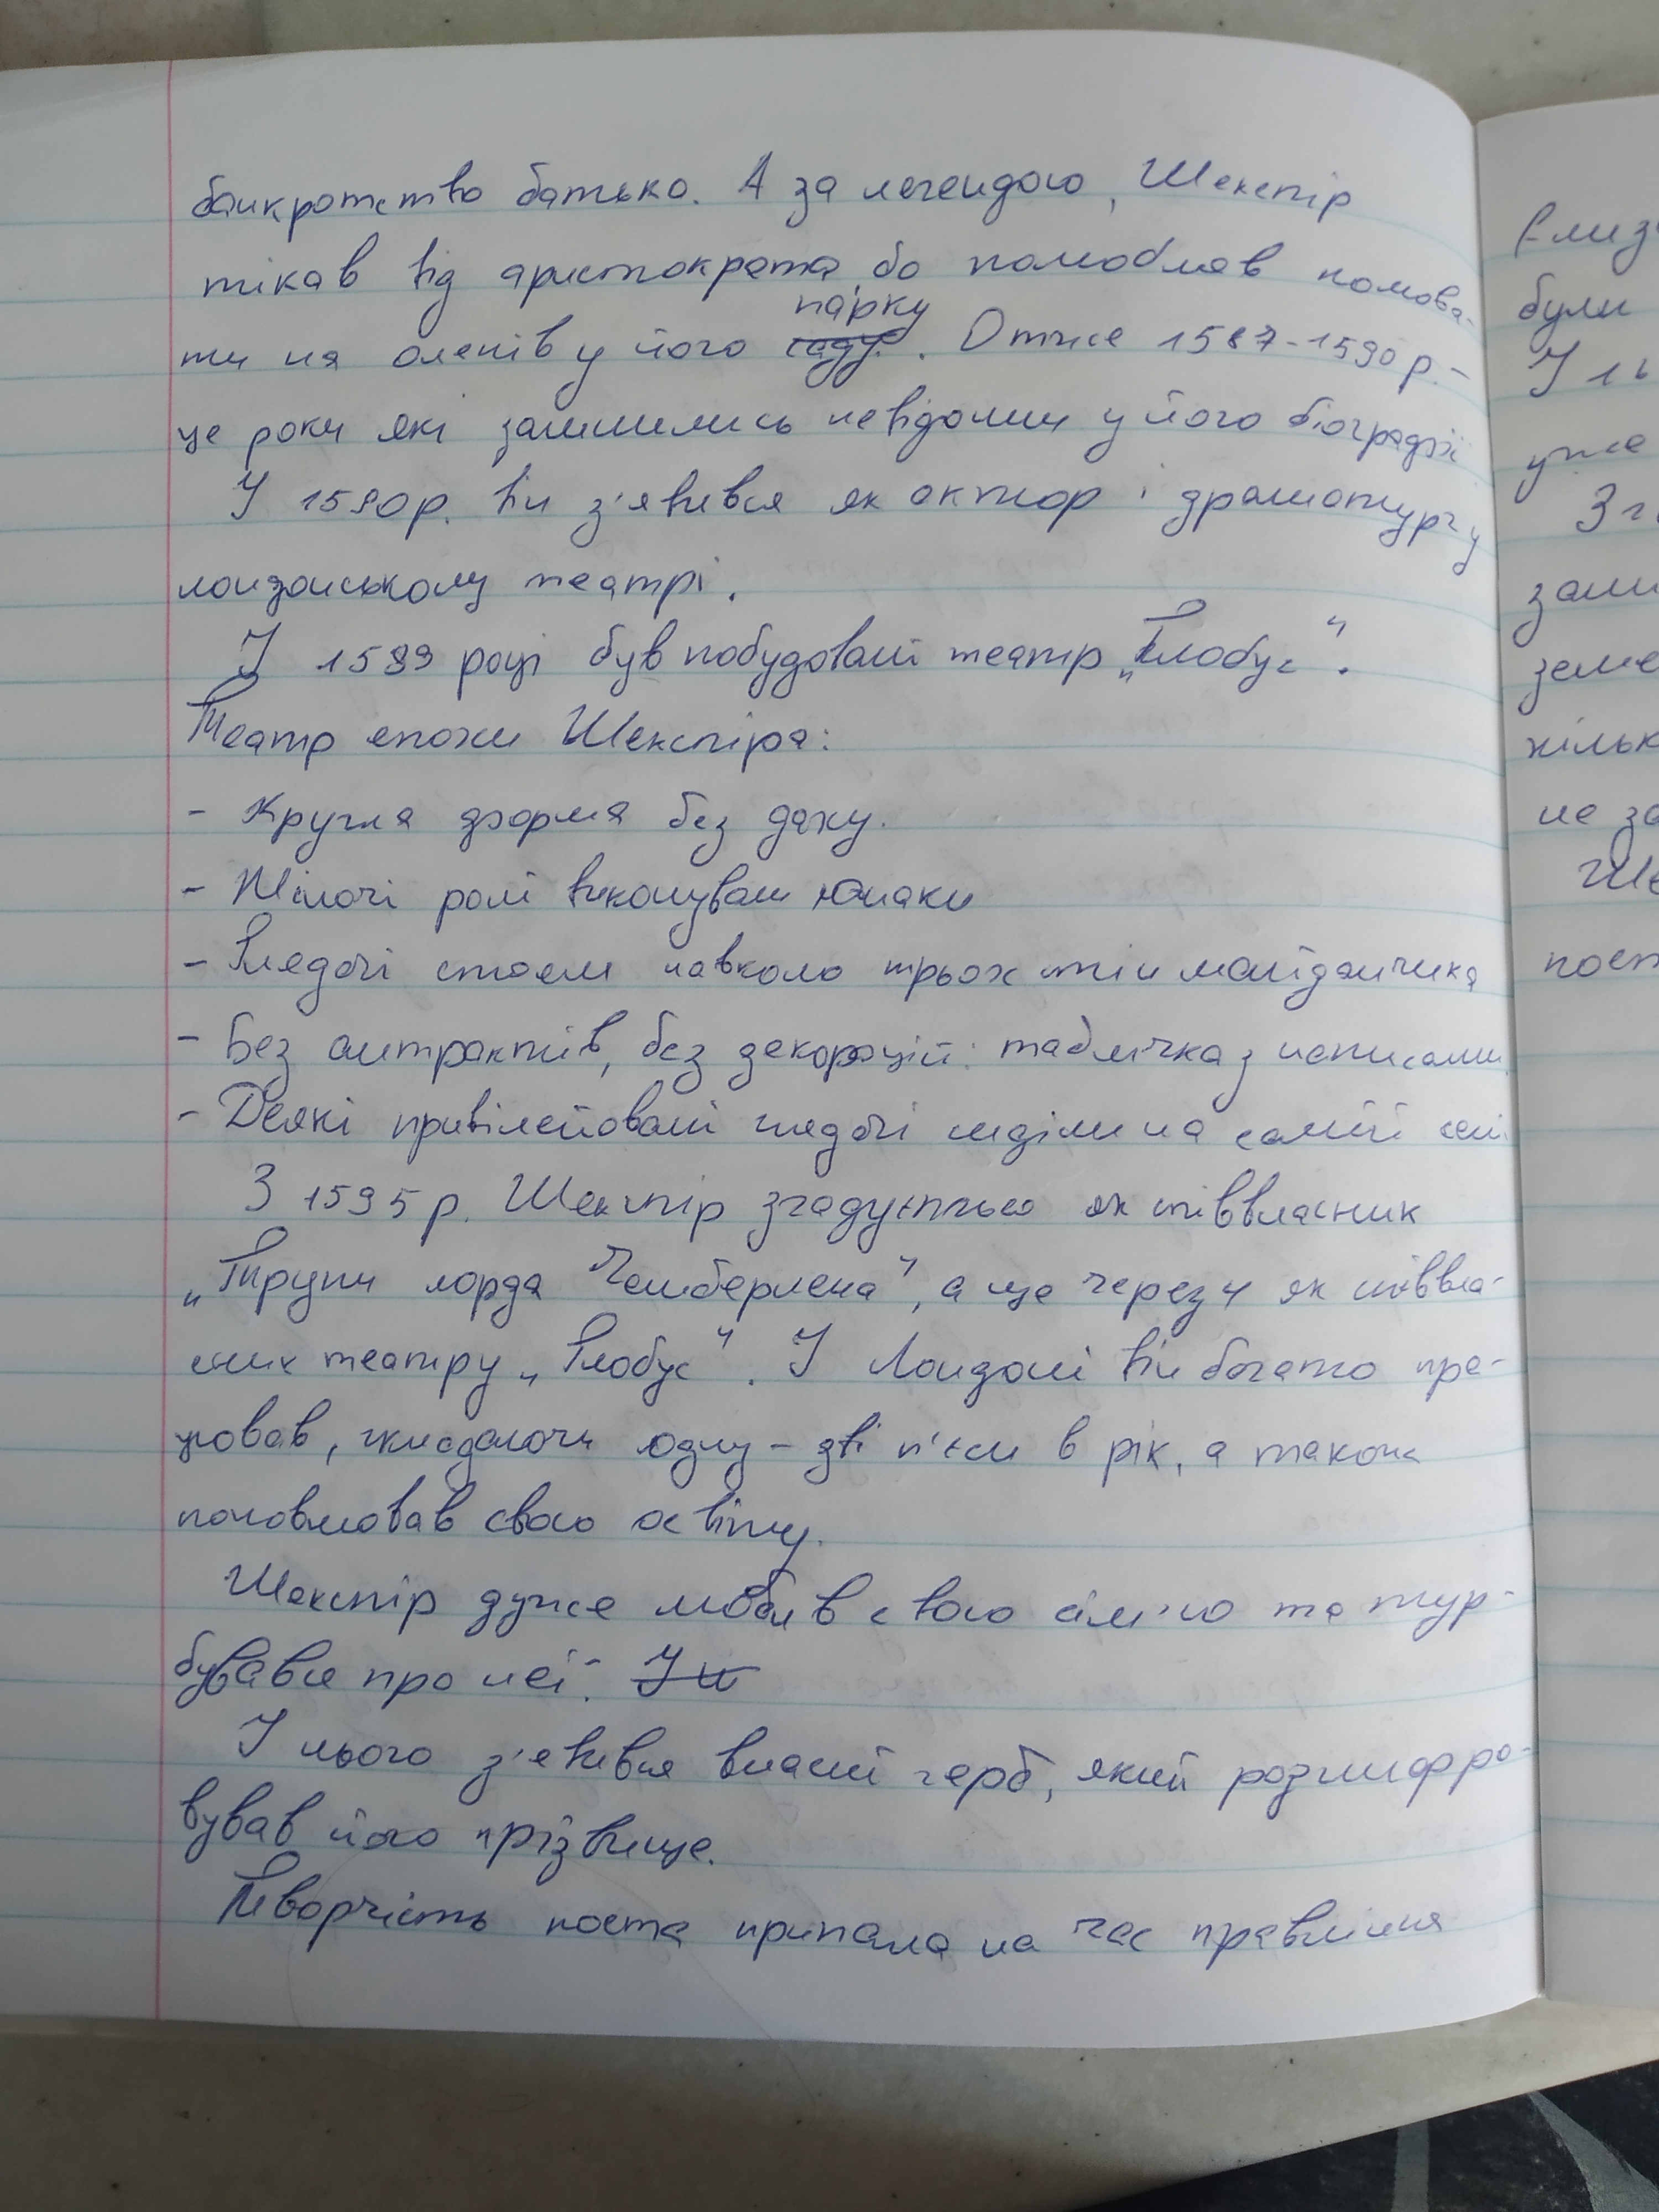 банкротство батька. А за легендою, Шекспір
тікав від аристократа, бо полюбляв полюва-
ти на оленів у його парку. Отже 1587-1590 р. –
це роки які залишились невідомим у його біографії
У 1590р. він з'явився як актор і драматург у
лондонському театрі.
У 1599 році був побудований театр „Глобус".
Театр епохи Шекспіра:
- Кругла форма без даху.
- Жіночі ролі виконували юнаки
- Глядачі стояли навколо трьох стін майданчика
- Без антрактів, без декорацій: табличка з написами.
- Деякі привілейовані глядачі сиділи на самій
З 1595 р. Шекспір згадується як співвласник
„Трупи лорда Чемберлена", а ще через 4 як співвла-
сник театру „Глобус". У Лондоні він багато пра-
цював, складаючи одну – дві п'єси в рік, а також
поповнював свою освіту.
Шекспір дуже любив свою сім'ю та тур-
бувався про неї.
У нього з'явився власний герб, який розшифро-
вував його прізвище.
Творчість поета припала на час правління
були
уже